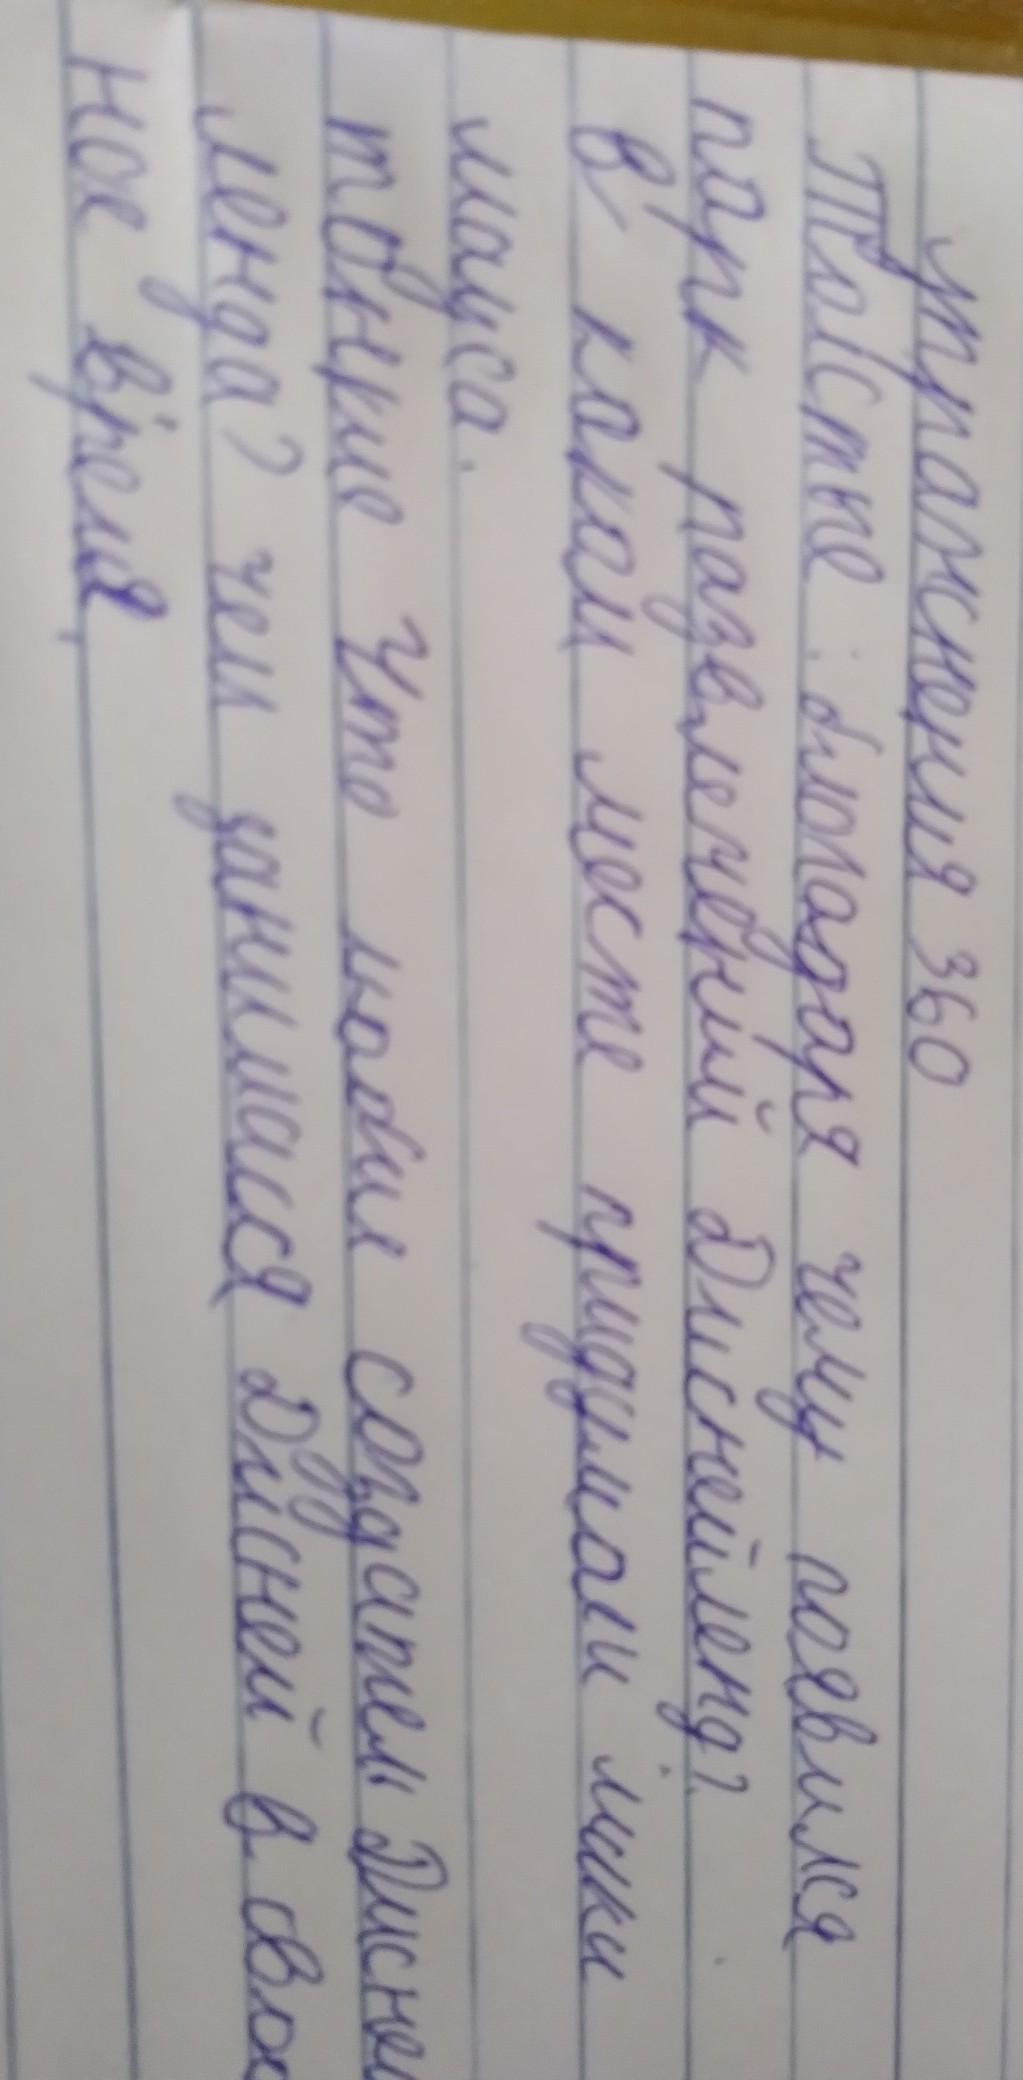 упражнения 360
Толстые: благодаря чему поевился
парк развлечений Диснейленд?
В каком месте придумали мики
мауса.
тонкие Что любил создатель Дисней
ленда? чем занимался Дисней в свобод
ное время.